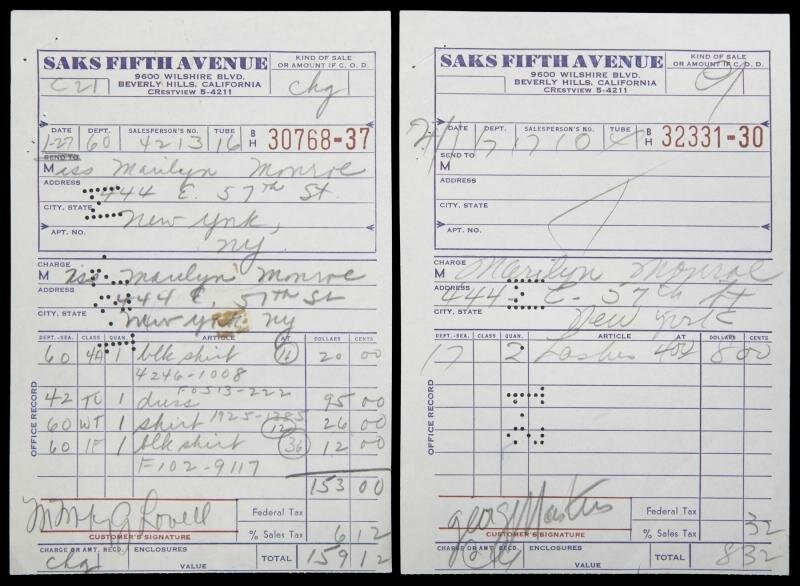 SAKS FIFTH AVENUE
9600 WILSHIRE BLVD.
BEVERLY HILLS, CALIFORNIA
CRestview 5-4211
C21
KIND OF SALE
OR AMOUNT IF C. O. D.
chg
DATE DEPT. SALESPERSON'S NO. TUBE
1-27 60 4213 16
B H 30768-37
SEND TO
Miss Marilyn Monroe
ADDRESS
444 E. 57th St.
CITY, STATE
New York,
APT. NO.
NY.
CHARGE
Miss Marilyn Monroe
ADDRESS
444 E. 57th St
CITY, STATE
New York NY
DEPT.-SEA. CLASS QUAN. ARTICLE AT DOLLARS CENTS
60 4A 1 blk skirt 16 20 00
4246-1008
F0513-222
42 TO 1 dress 95 00
60 WT 1 shirt 1925-1285 12 26 00
60 1F 1 blk skirt 36 12 00
F-102-9117
153 00
OFFICE RECORD
Lovell
CUSTOMER'S SIGNATURE
Federal Tax
% Sales Tax 6 12
CHARGE OR AMT. RECD. ENCLOSURES
chg
VALUE
TOTAL 159 12
SAKS FIFTH AVENUE
9600 WILSHIRE BLVD.
BEVERLY HILLS, CALIFORNIA
CRestview 5-4211
KIND OF SALE
OR AMOUNT IF C. O. D.
DATE DEPT. SALESPERSON'S NO. TUBE
2/1 17 1710 4
B H 32331-30
SEND TO
M
ADDRESS
CITY, STATE
APT. NO.
CHARGE
M Marilyn Monroe
ADDRESS
444 E. 57th St
CITY, STATE
New York
DEPT.-SEA. CLASS QUAN. ARTICLE AT DOLLARS CENTS
17 2 Lashes 400 8 00
OFFICE RECORD
George Masters
CUSTOMER'S SIGNATURE
Federal Tax
% Sales Tax 32
CHARGE OR AMT. RECD. ENCLOSURES
VALUE
TOTAL 8 32